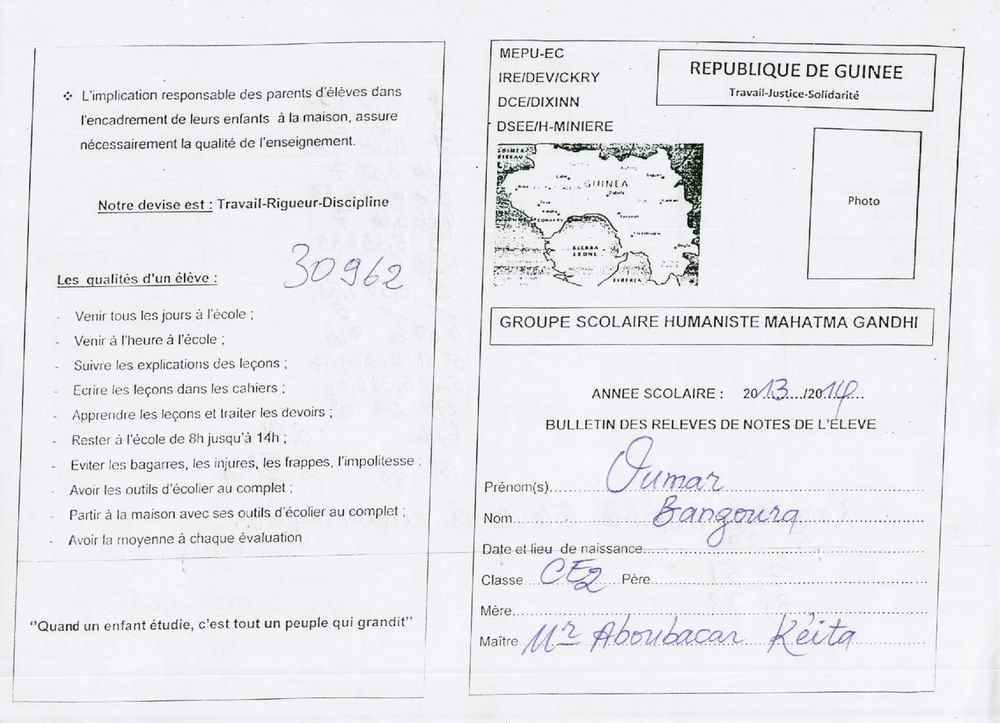 ❖ L'implication responsable des parents d'élèves dans
l'encadrement de leurs enfants à la maison, assure
nécessairement la qualité de l'enseignement.
Notre devise est : Travail-Rigueur-Discipline
30962
Les qualités d'un élève :
- Venir tous les jours à l'école ;
- Venir à l'heure à l'école ;
- Suivre les explications des leçons ;
- Ecrire les leçons dans les cahiers ;
- Apprendre les leçons et traiter les devoirs ;
- Rester à l'école de 8h jusqu'à 14h ;
- Eviter les bagarres, les injures, les frappes, l'impolitesse ;
- Avoir les outils d'écolier au complet ;
- Partir à la maison avec ses outils d'écolier au complet ;
- Avoir la moyenne à chaque évaluation
"Quand un enfant étudie, c'est tout un peuple qui grandit"
MEPU-EC
IRE/DEV/CKRY
DCE/DIXINN
DSEE/H-MINIERE
REPUBLIQUE DE GUINEE
Travail-Justice-Solidarité
GUINEA
SIERRA
LEONE
LIBERIA
Photo
GROUPE SCOLAIRE HUMANISTE MAHATMA GANDHI
ANNEE SCOLAIRE : 2013..../2014...
BULLETIN DES RELEVES DE NOTES DE L'ÉLEVE
Prénom(s) Oumar
Nom Bangoura
Date et lieu de naissance
Classe CE2 Père
Mère
Maître Mr Aboubacar Kéita